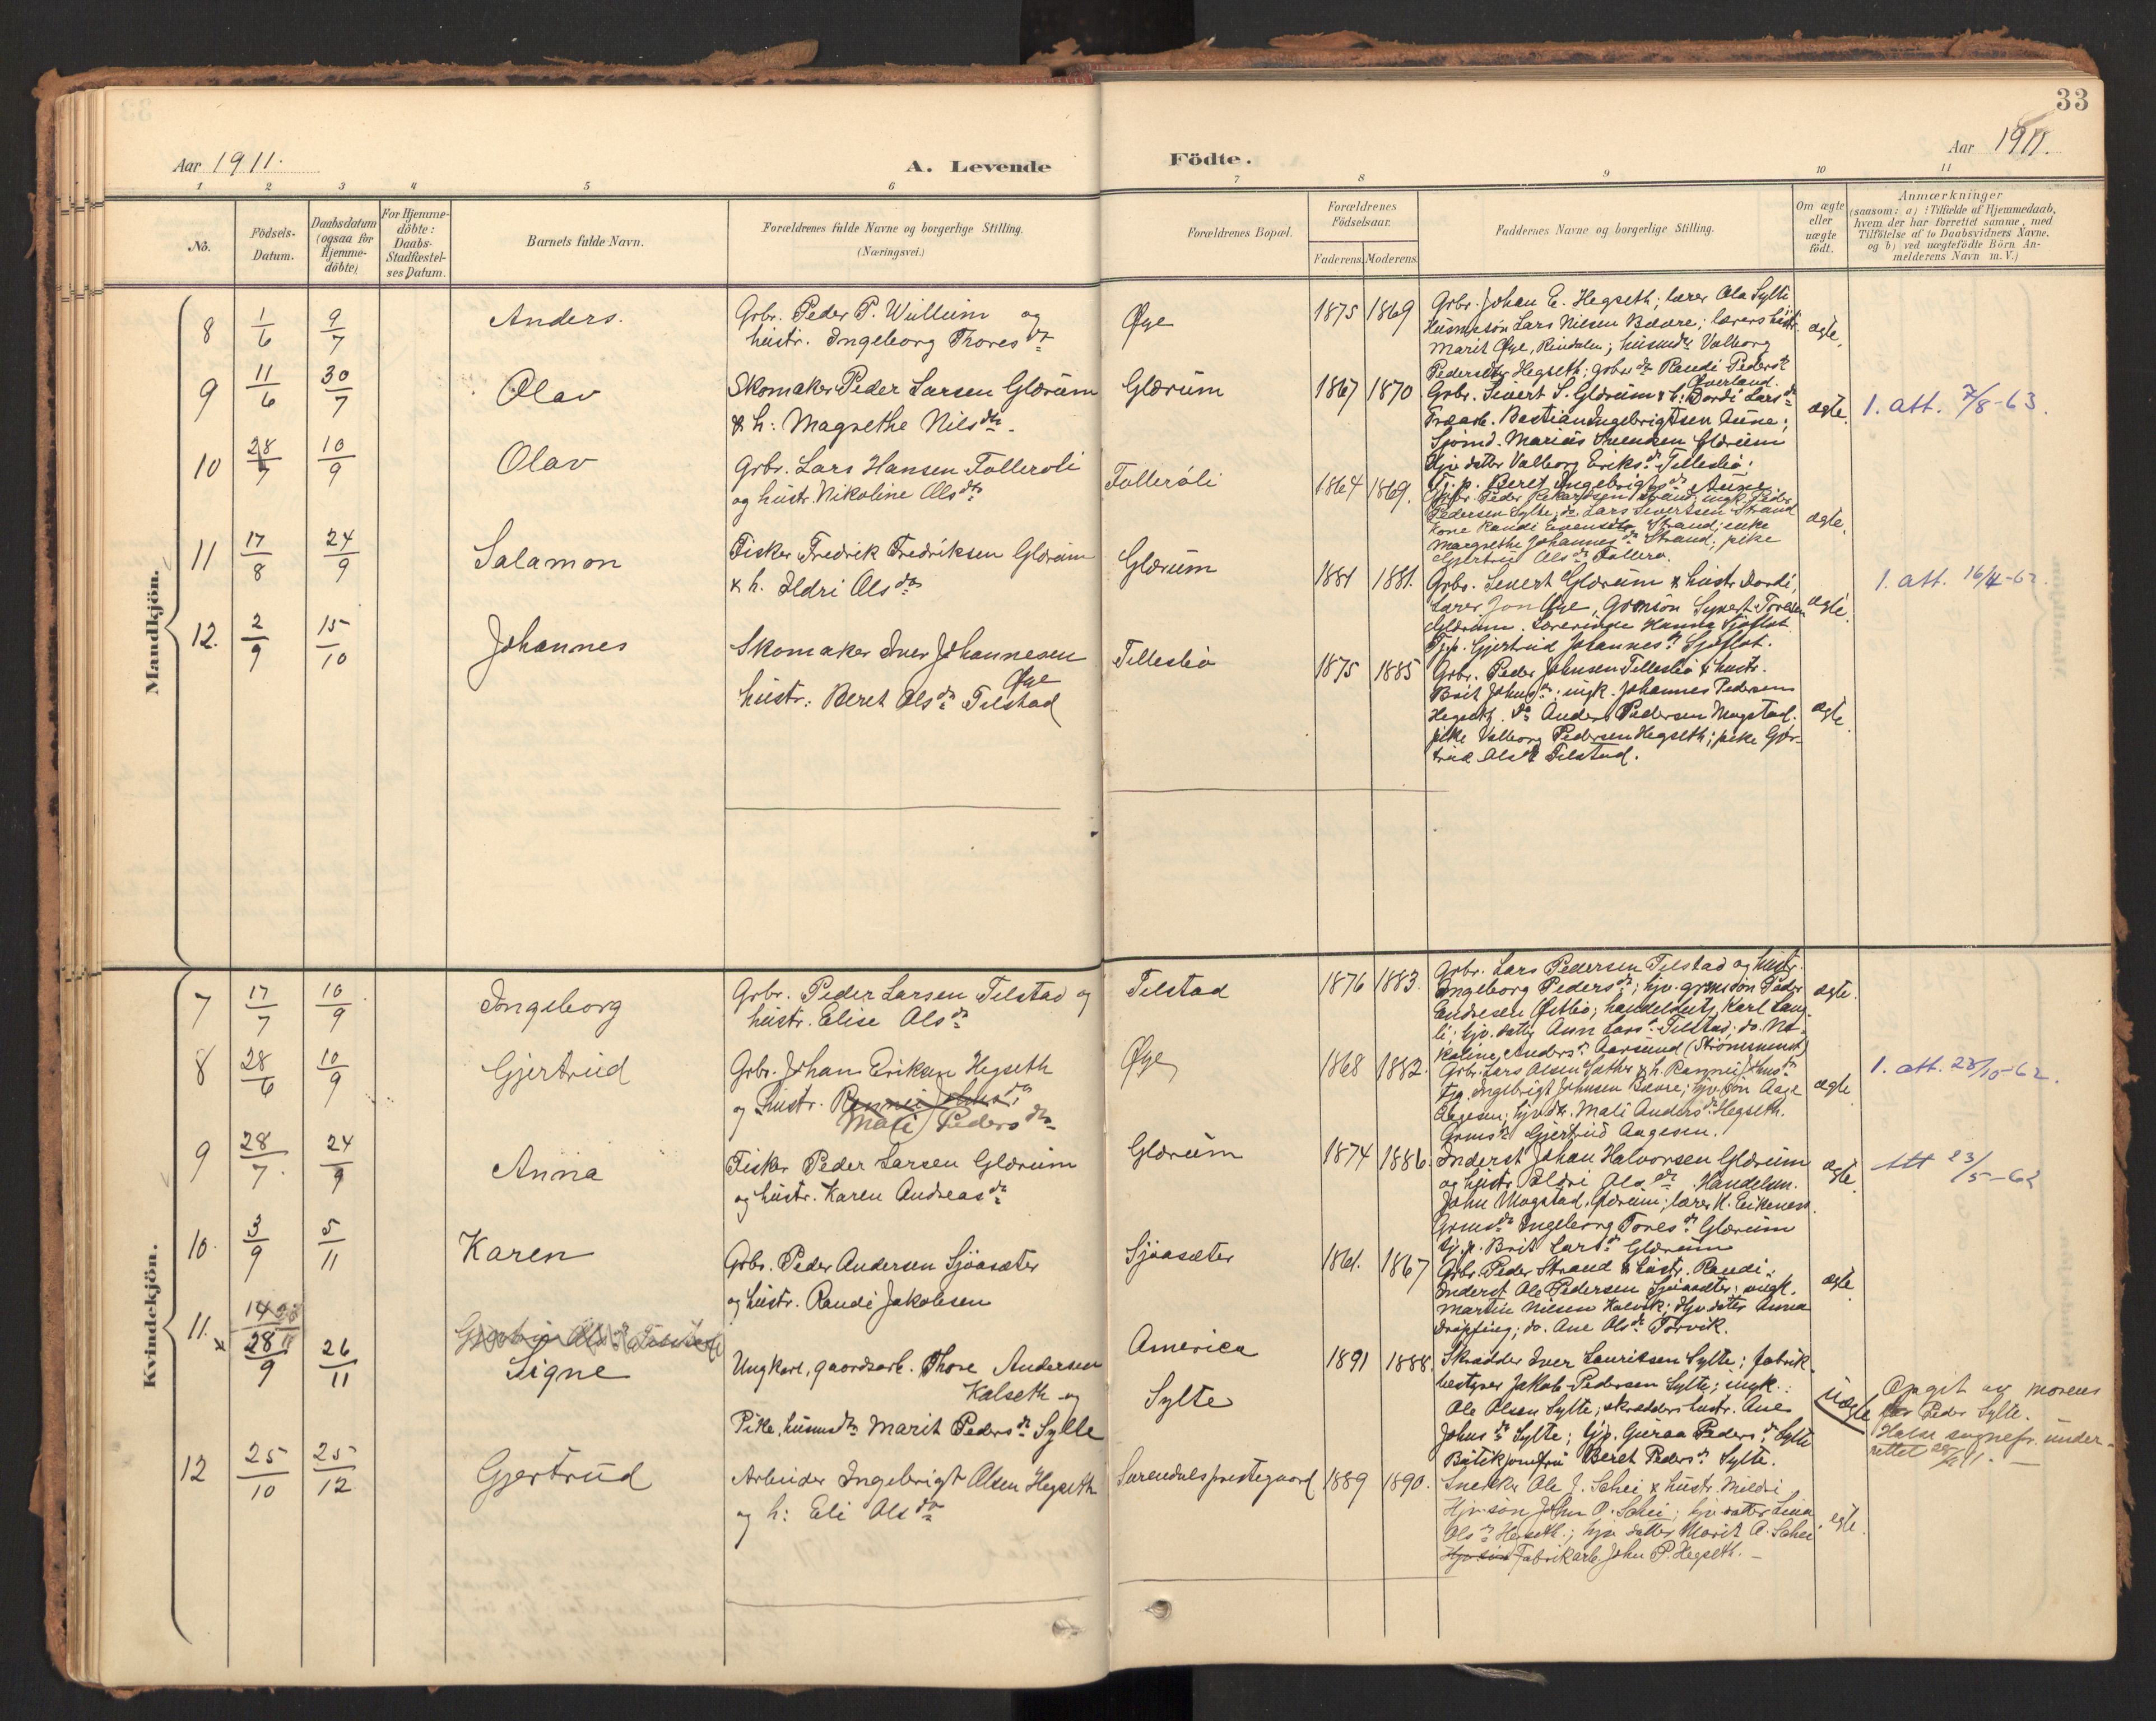 33
Aar 1911.
A. Levende
Födte.
Aar 1911.
1 2 3 4 5 6 7 8 9 10 11
No.
Födsels-
Datum.
Daabsdatum
(ogsaa for
Hjemme-
döbte).
For Hjemme-
döbte:
Daabs-
Stadfæstel-
ses Datum.
Barnets fulde Navn.
Forældrenes fulde Navne og borgerlige Stilling.
(Næringsvei.)
Forældrenes Bopæl.
Forældrenes
Födselsaar.
Faderens. Moderens.
Faddernes Navne og borgerlige Stilling.
Om ægte
eller
uægte
födt.
Anmærkninger
(saasom: a) i Tilfælde af Hjemmedaab,
hvem der har forrettet samme, med
Tilföielse af to Daabsvidners Navne,
og b) ved uægtefödte Börn An-
melderens Navn m. V.)
Mandkjön.
8 1/6 9/7 Anders.
Grbr. Peder P. Wullum og
hustr. Ingeborg Thoresdtr
Øye 1875 1869
Grbr. Johan E. Hegseth; lærer Ola Sylte
Husmsön Lars Nilsen Bævre; lærers hustr.
Marit Øye, Rindalen; husmdtr Valborg
Pedersdtr Hegseth; gbrdtr Randi Pedersdtr
Överland.
ægte.
9 11/6 30/7 Olav
Skomaker Peder Larsen Glærum
& h: Magrethe Nilsdtr
Glærum 1867 1870
Grbr. Sivert S. Glærum & h: Dordi Larsdtr
Bastian Ingebrigtsen Aune;
Sjömd. Marius Svendsen Glærum
Hjv datter Valborg Eriksdtr Tellesbö;
Tj. p. Beret Ingebrigtsdtr Aune.
ægte. 1. att. 7/8-63.
10 28/7 10/9 Olav
Grbr. Lars Hansen Folleröli
og hustr. Nikoline Olsdtr
Falleröli 1864 1869.
Grbr. Peder Strand; ungk. Peder
Pedersen Sylte; do Lars Sivertsen Strand
Kone Randi Evensdtr Strand; enke
Margrethe Johannesdtr Strand; pike
Gjertrud Olsdtr Follerö.
ægte.
11 17/8 24/9 Salamon
Fisker Fredrik Fredriksen Glærum
& h. Ildri Olsdtr
Glærum 1881 1881.
Grbr. Sivert Glærum & hustr Dordi;
Lærer Jon Øye, Grmsön Syvert Toresen
Glærum. Lærerinde Hanna Sjöflot.
Tj.p. Gjertrud Johannesdtr Sjöflot.
ægte 1. att. 16/4-62.
12. 2/9 15/10 Johannes
Skomaker Iver Johannesen
Øye
hustr: Beret Olsdtr Telstad
Tellesbö 1875 1885
Grbr. Peder Johnsen Tellesbö & hustr.
Brit Johnsdtr; ungk. Johannes Pedersen
Hegseth. do Anders Pedersen Mogstad.
pike Valborg Pedersen Hegseth; pike Gjer-
trud Olsdtr Telstad.
ægte.
Kvindekjön.
7 17/7 10/9 Ingeborg
Grbr. Peder Larsen Telstad og
hustr. Elise Olsdtr
Telstad 1876 1883.
Grbr. Lars Pedersen Telstad og hustr.
Ingeborg Pedersdtr; hjv. grmsön Peder
Andresen Östbö; handelsbetj. Karl Lang-
li; hjv. datter Ann Larsdtr Telstad; do. Ni-
koline Andersdtr Aarsund (Strömsund)
ægte.
8 28/6 10/9 Gjertrud
Grbr. Johan Eriksen Hegseth
og hustr. Rannei Johnsdtr
Mali Pedersdtr
Øye 1868 1882.
Grbr. Lars Olsen Sæther & h. Rannei Johnsdtr
Tjg. Ingebrigt Johnsen Bævre; hjv. sön Aage
Aagesen; hjvdtr. Mali Andersdtr Hegseth.
Grmsdtr Gjertrud Aagesen.
ægte. 1. att. 23/10-62.
9 28/7. 24/9 Anna
Fisker Peder Larsen Glærum
og hustr. Karen Andreasdtr
Glærum 1874 1886.
Inderst Johan Halvorsen Glærum
og hustr. Ildri Olsdtr. Handelsm.
John Mogstad, Glærum; lærer K. Eikenes.
Grmsdtr Ingeborg Toresdtr Glærum
Tj.p. Brit Larsdtr Glærum
ægte. Att 23/5-62
10. 3/9 5/11 Karen
Grbr. Peder Andersen Sjöasæter
og hustr. Randi Jakobsen
Sjöasæter 1861. 1867
Grbr. Peder Strand & hustr. Randi.
Inderst Ole Pedersen Sjöasæter; ungk.
Martin Nilsen Kalvik; Hjv datter Anna
Dröpping; do. Ane Olsdtr Torvik.
ægte.
11. 28/9 26/11
Signe
Ungkarl, gaardsarb. Thore Andersen
Kalseth og
Pike, husmdtr Marit Pedersdtr Sylte
America
Sylte
1891 1888.
Skrædder Iver Lauritsen Sylte; fabrik-
bestyrer Jakob Pedersen Sylte; ungk.
Ole Olsen Sylte; skrædders hustr. Ane
Johnsdtr Sylte; tj.p. Guraa Pedersdtr Sylte
Butikjomfru Beret Pedersdtr Sylte.
uægte
Opgit av morens
far Peder Sylte.
Halse sognepr. under-
rettet 28/11 11.
12 25/10 25/12 Gjertrud
Arbeider Ingebrigt Olsen Hegseth
og h: Eli Olsdtr
Surendalsprestegaard 1889 1890.
Snekker Ole J. Schei & hustr. Mildri
Hjv. sön John O. Schei; hjv. datter Lina
Olsdtr Hegseth; hjv datter Marit O. Schei
Hjv. sön Fabrikarb John P. Hegseth.
egte.